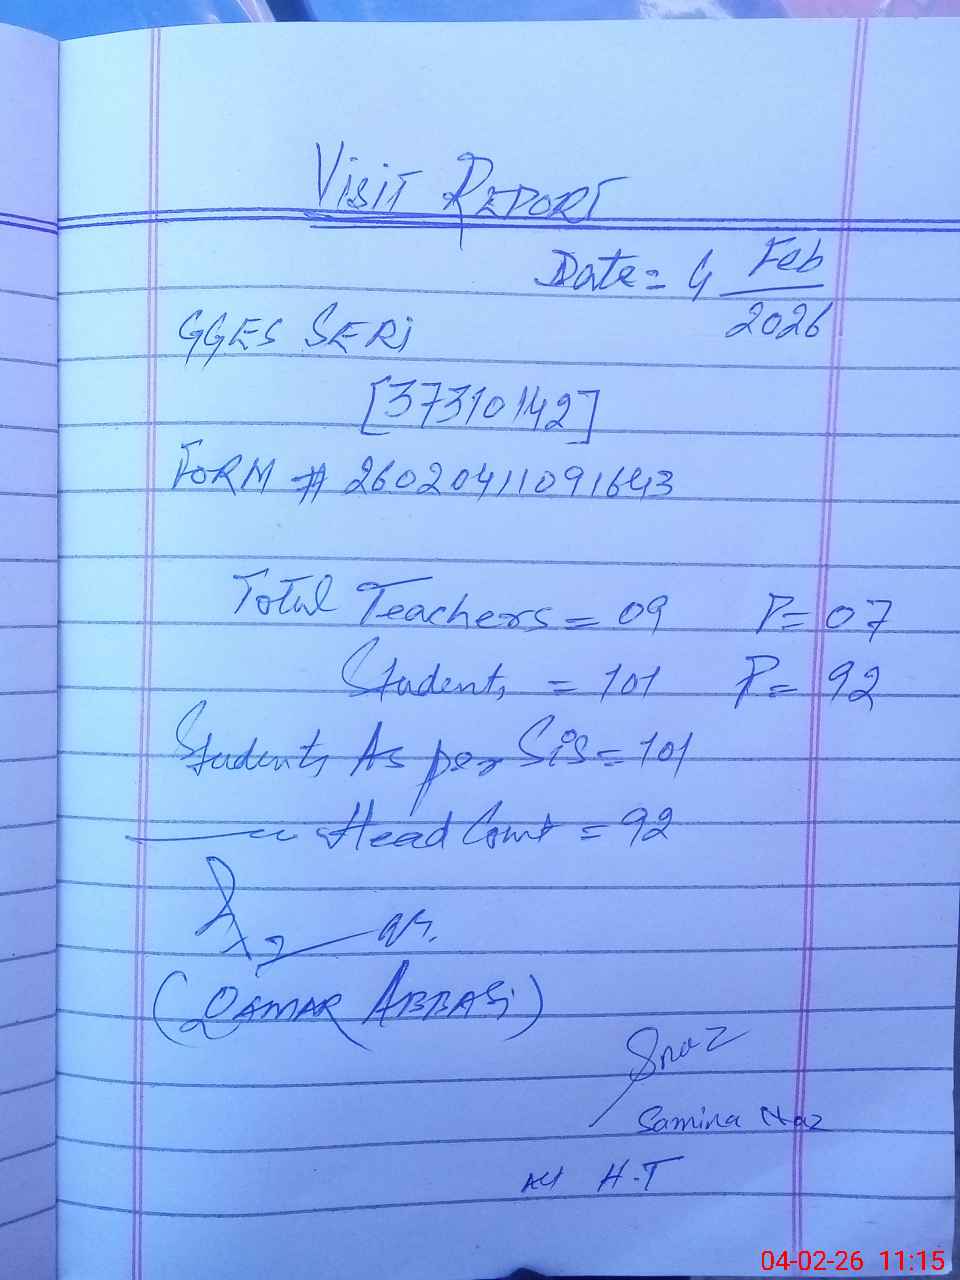 VISIT REPORT
Date = 4 Feb
2026
GGES SERI
[37310142]
FORM # 26020411091643
Total Teachers = 09 P= 07
Students = 101 P= 92
Students As per SiS = 101
Head Count = 92
(QAMAR ABBASi)
Snaz
Samina Naz
H.T
04-02-26 11:15